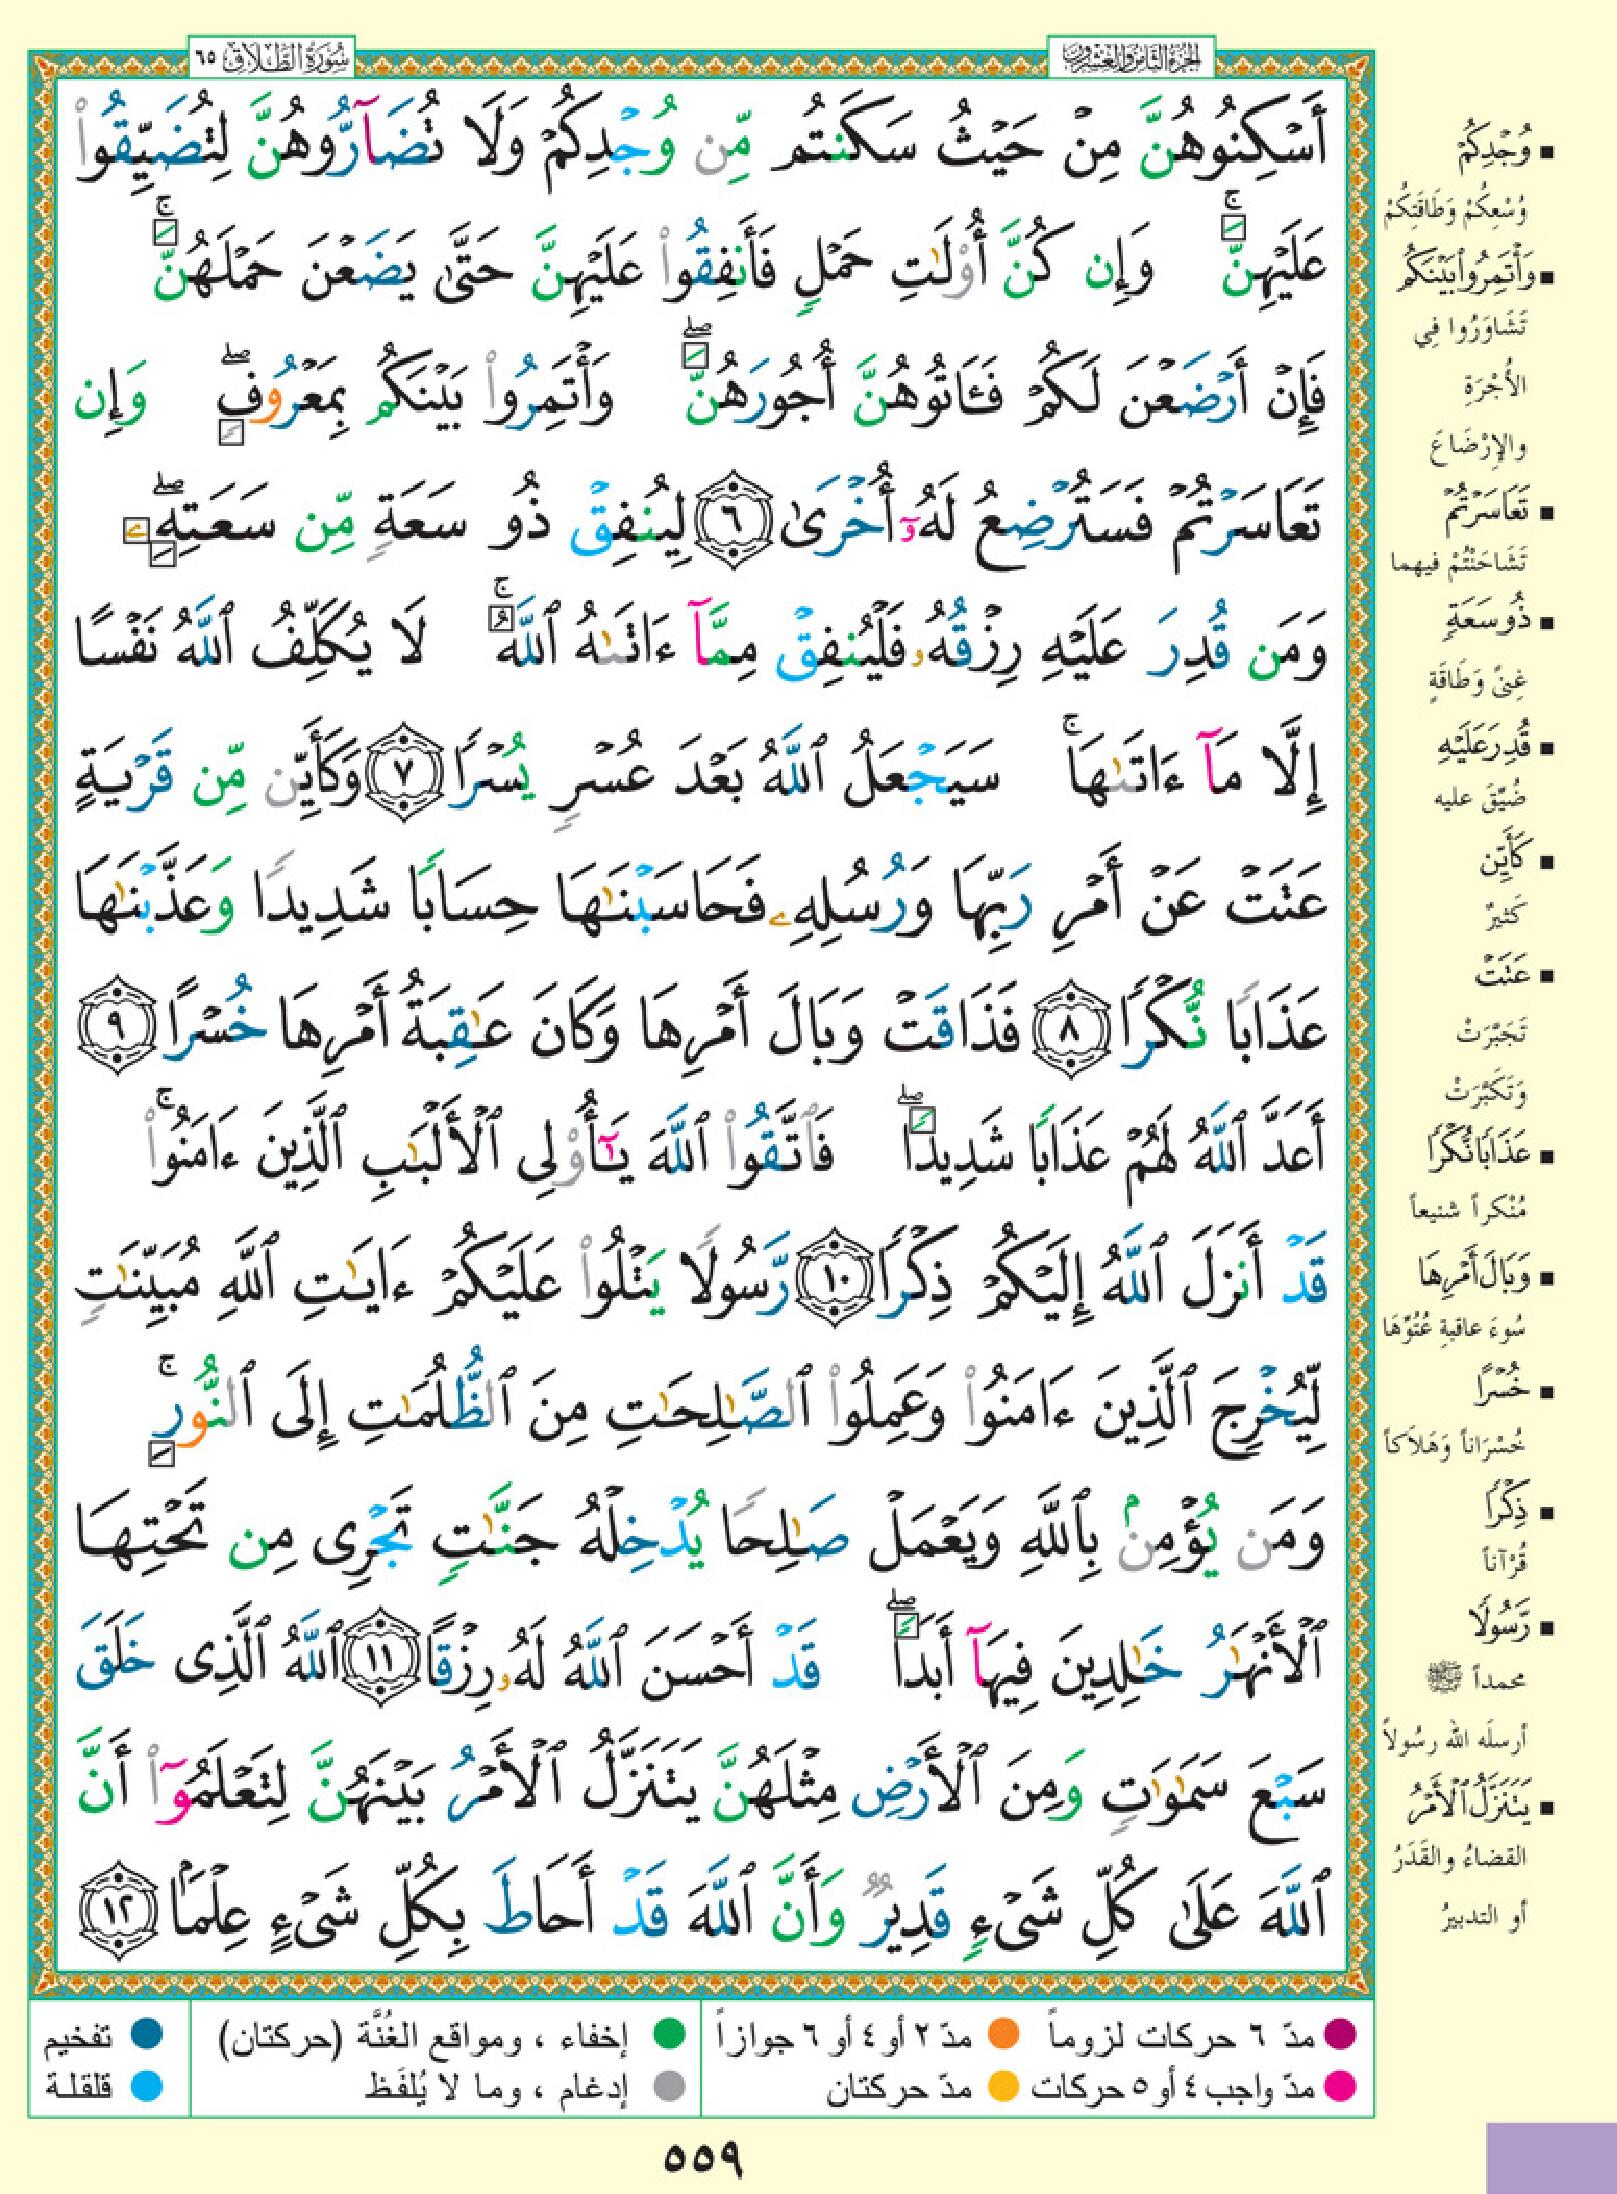 الجزء الثامن والعشرون
سورة الطلاق ٦٥
أَسْكِنُوهُنَّ مِنْ حَيْثُ سَكَنتُم مِّن وُجْدِكُمْ وَلَا تُضَآرُّوهُنَّ لِتُضَيِّقُوا۟
عَلَيْهِنَّ ۚ وَإِن كُنَّ أُو۟لَـٰتِ حَمْلٍ فَأَنفِقُوا۟ عَلَيْهِنَّ حَتَّىٰ يَضَعْنَ حَمْلَهُنَّ ۚ
فَإِنْ أَرْضَعْنَ لَكُمْ فَـَٔاتُوهُنَّ أُجُورَهُنَّ ۖ وَأْتَمِرُوا۟ بَيْنَكُم بِمَعْرُوفٍ ۖ وَإِن
تَعَاسَرْتُمْ فَسَتُرْضِعُ لَهُۥٓ أُخْرَىٰ ٦ لِيُنفِقْ ذُو سَعَةٍ مِّن سَعَتِهِۦ ۖ
وَمَن قُدِرَ عَلَيْهِ رِزْقُهُۥ فَلْيُنفِقْ مِمَّآ ءَاتَىٰهُ ٱللَّهُ ۚ لَا يُكَلِّفُ ٱللَّهُ نَفْسًا
إِلَّا مَآ ءَاتَىٰهَا ۚ سَيَجْعَلُ ٱللَّهُ بَعْدَ عُسْرٍ يُسْرًا ٧ وَكَأَيِّن مِّن قَرْيَةٍ
عَتَتْ عَنْ أَمْرِ رَبِّهَا وَرُسُلِهِۦ فَحَاسَبْنَـٰهَا حِسَابًا شَدِيدًا وَعَذَّبْنَـٰهَا
عَذَابًا نُّكْرًا ٨ فَذَاقَتْ وَبَالَ أَمْرِهَا وَكَانَ عَـٰقِبَةُ أَمْرِهَا خُسْرًا ٩
أَعَدَّ ٱللَّهُ لَهُمْ عَذَابًا شَدِيدًا ۖ فَٱتَّقُوا۟ ٱللَّهَ يَـٰٓأُو۟لِى ٱلْأَلْبَـٰبِ ٱلَّذِينَ ءَامَنُوا۟ ۚ
قَدْ أَنزَلَ ٱللَّهُ إِلَيْكُمْ ذِكْرًا ١٠ رَّسُولًا يَتْلُوا۟ عَلَيْكُمْ ءَايَـٰتِ ٱللَّهِ مُبَيِّنَـٰتٍ
لِّيُخْرِجَ ٱلَّذِينَ ءَامَنُوا۟ وَعَمِلُوا۟ ٱلصَّـٰلِحَـٰتِ مِنَ ٱلظُّلُمَـٰتِ إِلَى ٱلنُّورِ ۚ
وَمَن يُؤْمِنۢ بِٱللَّهِ وَيَعْمَلْ صَـٰلِحًا يُدْخِلْهُ جَنَّـٰتٍ تَجْرِى مِن تَحْتِهَا
ٱلْأَنْهَـٰرُ خَـٰلِدِينَ فِيهَآ أَبَدًا ۖ قَدْ أَحْسَنَ ٱللَّهُ لَهُۥ رِزْقًا ١١ ٱللَّهُ ٱلَّذِى خَلَقَ
سَبْعَ سَمَـٰوَٰتٍ وَمِنَ ٱلْأَرْضِ مِثْلَهُنَّ يَتَنَزَّلُ ٱلْأَمْرُ بَيْنَهُنَّ لِتَعْلَمُوٓا۟ أَنَّ
ٱللَّهَ عَلَىٰ كُلِّ شَىْءٍ قَدِيرٌ وَأَنَّ ٱللَّهَ قَدْ أَحَاطَ بِكُلِّ شَىْءٍ عِلْمًۢا ١٢
■ وُجْدِكُمْ
وُسْعِكُمْ وَطَاقَتِكُمْ
■ وَأْتَمِرُوا۟ بَيْنَكُم
تَشَاوَرُوا في
الأُجْرَةِ
والإِرْضَاعَ
■ تَعَاسَرْتُمْ
تَشَاحَنْتُمْ فيهما
■ ذُو سَعَةٍ
غِنىً وَطَاقَةٍ
■ قُدِرَ عَلَيْهِ
ضُيِّقَ عليه
■ كَأَيِّن
كَثيرٌ
■ عَتَتْ
تَجَبَّرَتْ
وَتَكَبَّرَتْ
■ عَذَابًا نُّكْرًا
مُنْكراً شنيعاً
■ وَبَالَ أَمْرِهَا
سُوءَ عاقبةِ عُتُوِّهَا
■ خُسْرًا
خُسْرَاناً وَهَلاَكاً
■ ذِكْرًا
قُرْآناً
■ رَّسُولًا
محمداً ﷺ
أرسلَه الله رسُولاً
■ يَتَنَزَّلُ ٱلْأَمْرُ
القضاءُ والقَدَرُ
أو التدبيرُ
مدّ ٦ حركات لزوماً مدّ ٢ أو ٤ أو ٦ جوازاً إخفاء ، ومواقع الغُنَّة (حركتان) تفخيم
مدّ واجب ٤ أو ٥ حركات مدّ حركتان إدغام ، وما لا يُلفَظ قلقلة
٥٥٩